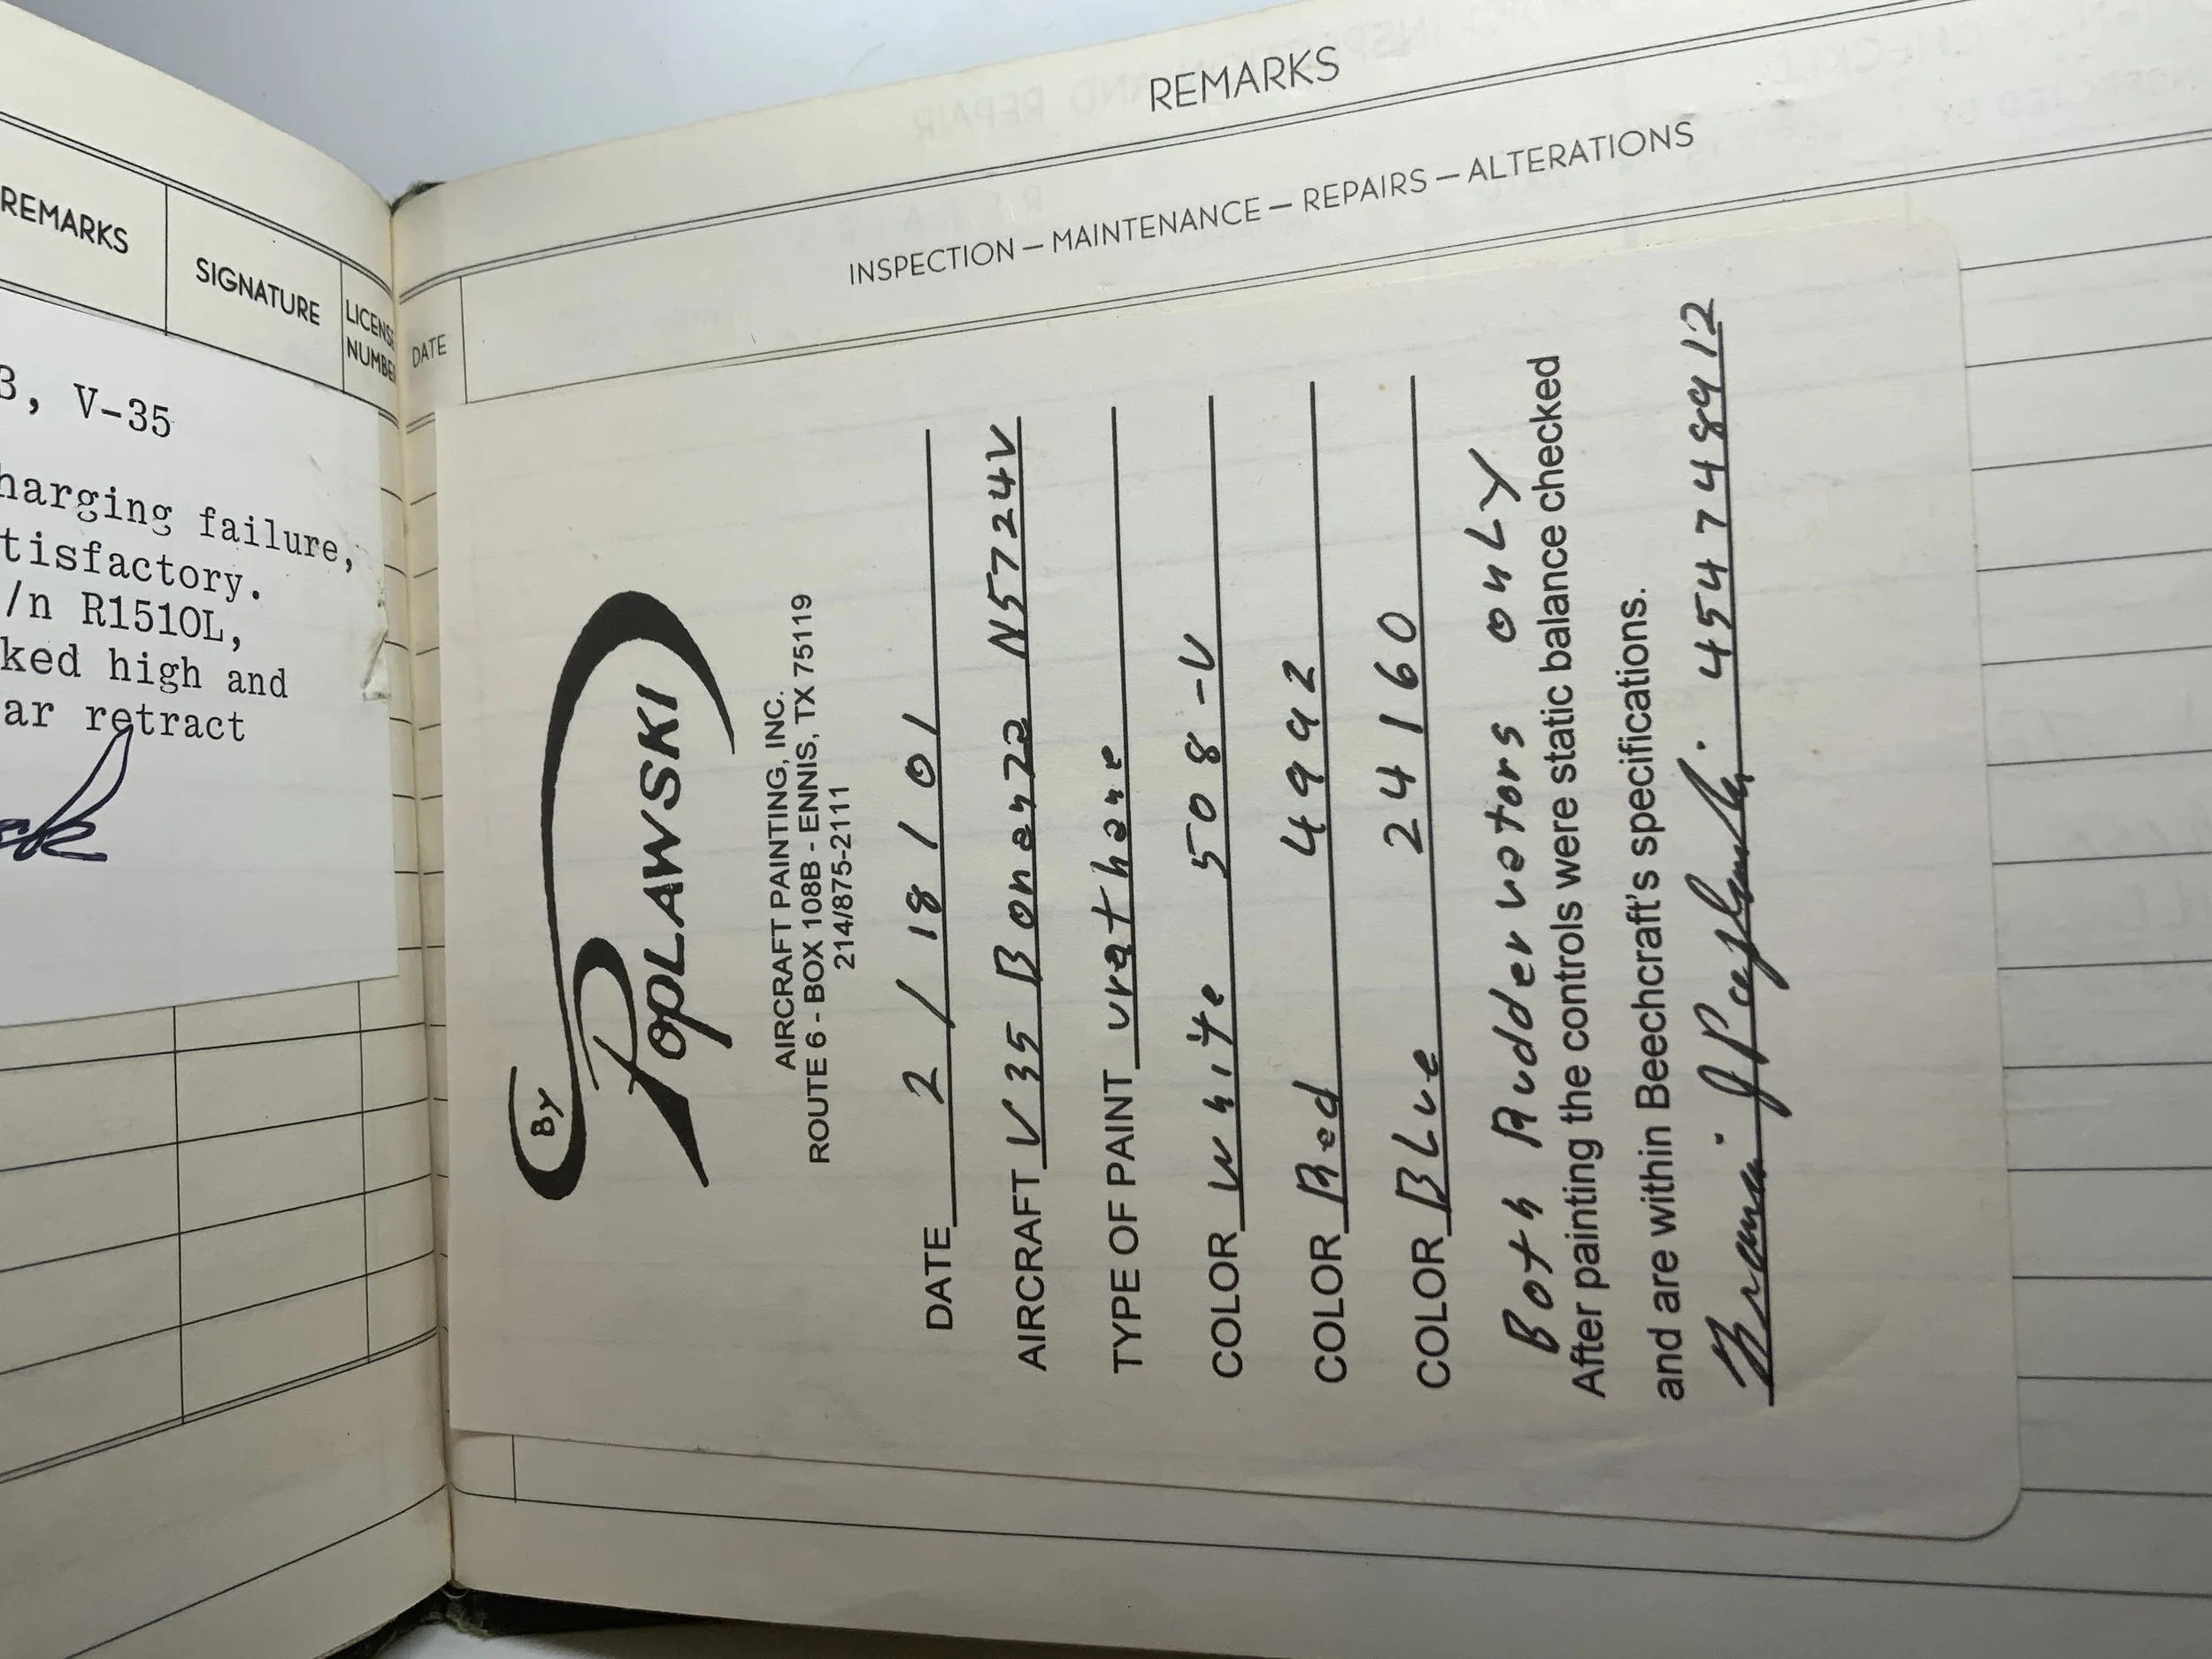 REMARKS
SIGNATURE
LICENSE
NUMBER
3, V-35
harging failure,
tisfactory.
/n R1510L,
ked high and
ar retract
REMARKS
DATE
INSPECTION — MAINTENANCE — REPAIRS — ALTERATIONS
By
POPLAWSKI
AIRCRAFT PAINTING, INC.
ROUTE 6 - BOX 108B - ENNIS, TX 75119
214/875-2111
DATE 2 / 18 / 01
AIRCRAFT V35 Bonanza N5724V
TYPE OF PAINT urethane
COLOR White 508-V
COLOR Red 4992
COLOR BLue 24160
Both Ruddervators onLY
After painting the controls were static balance checked
and are within Beechcraft's specifications.
454748912